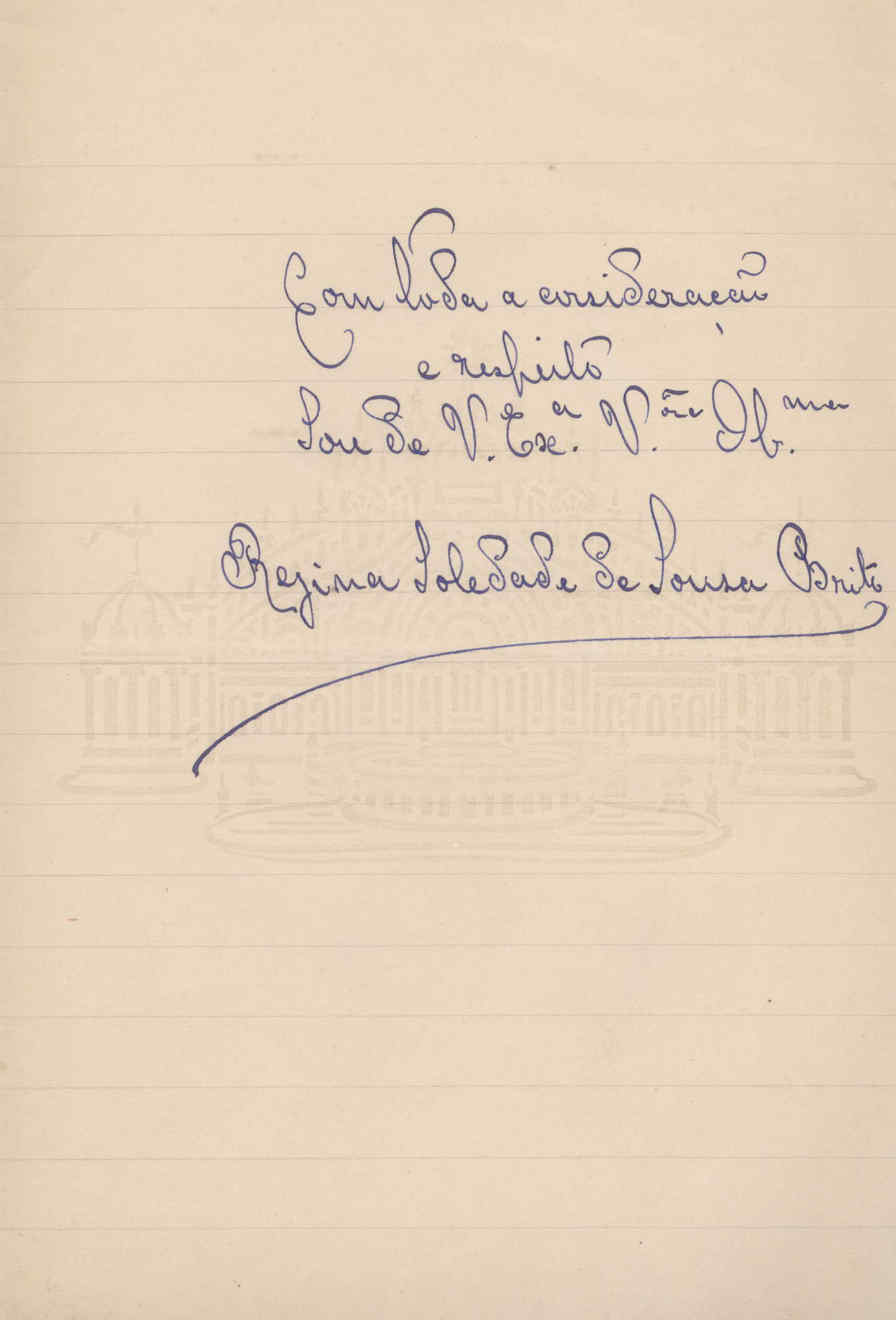 Com toda a cosideração
e respeito
Sou de V. Ex.ª V.ᵒʳᵃ Ob.ᵐᵃ
Regina Soledade de Sousa Brito